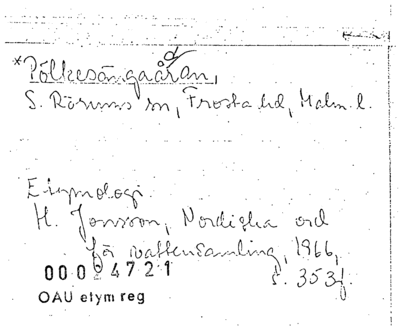 *Pölkesångaåran,
å
S. Rörums sn, Frosta hd, Malm. l.
Etymologi.
H. Jonsson, Nordiska ord
för vattensamling, 1966,
s. 353f.
00024721
OAU etym reg